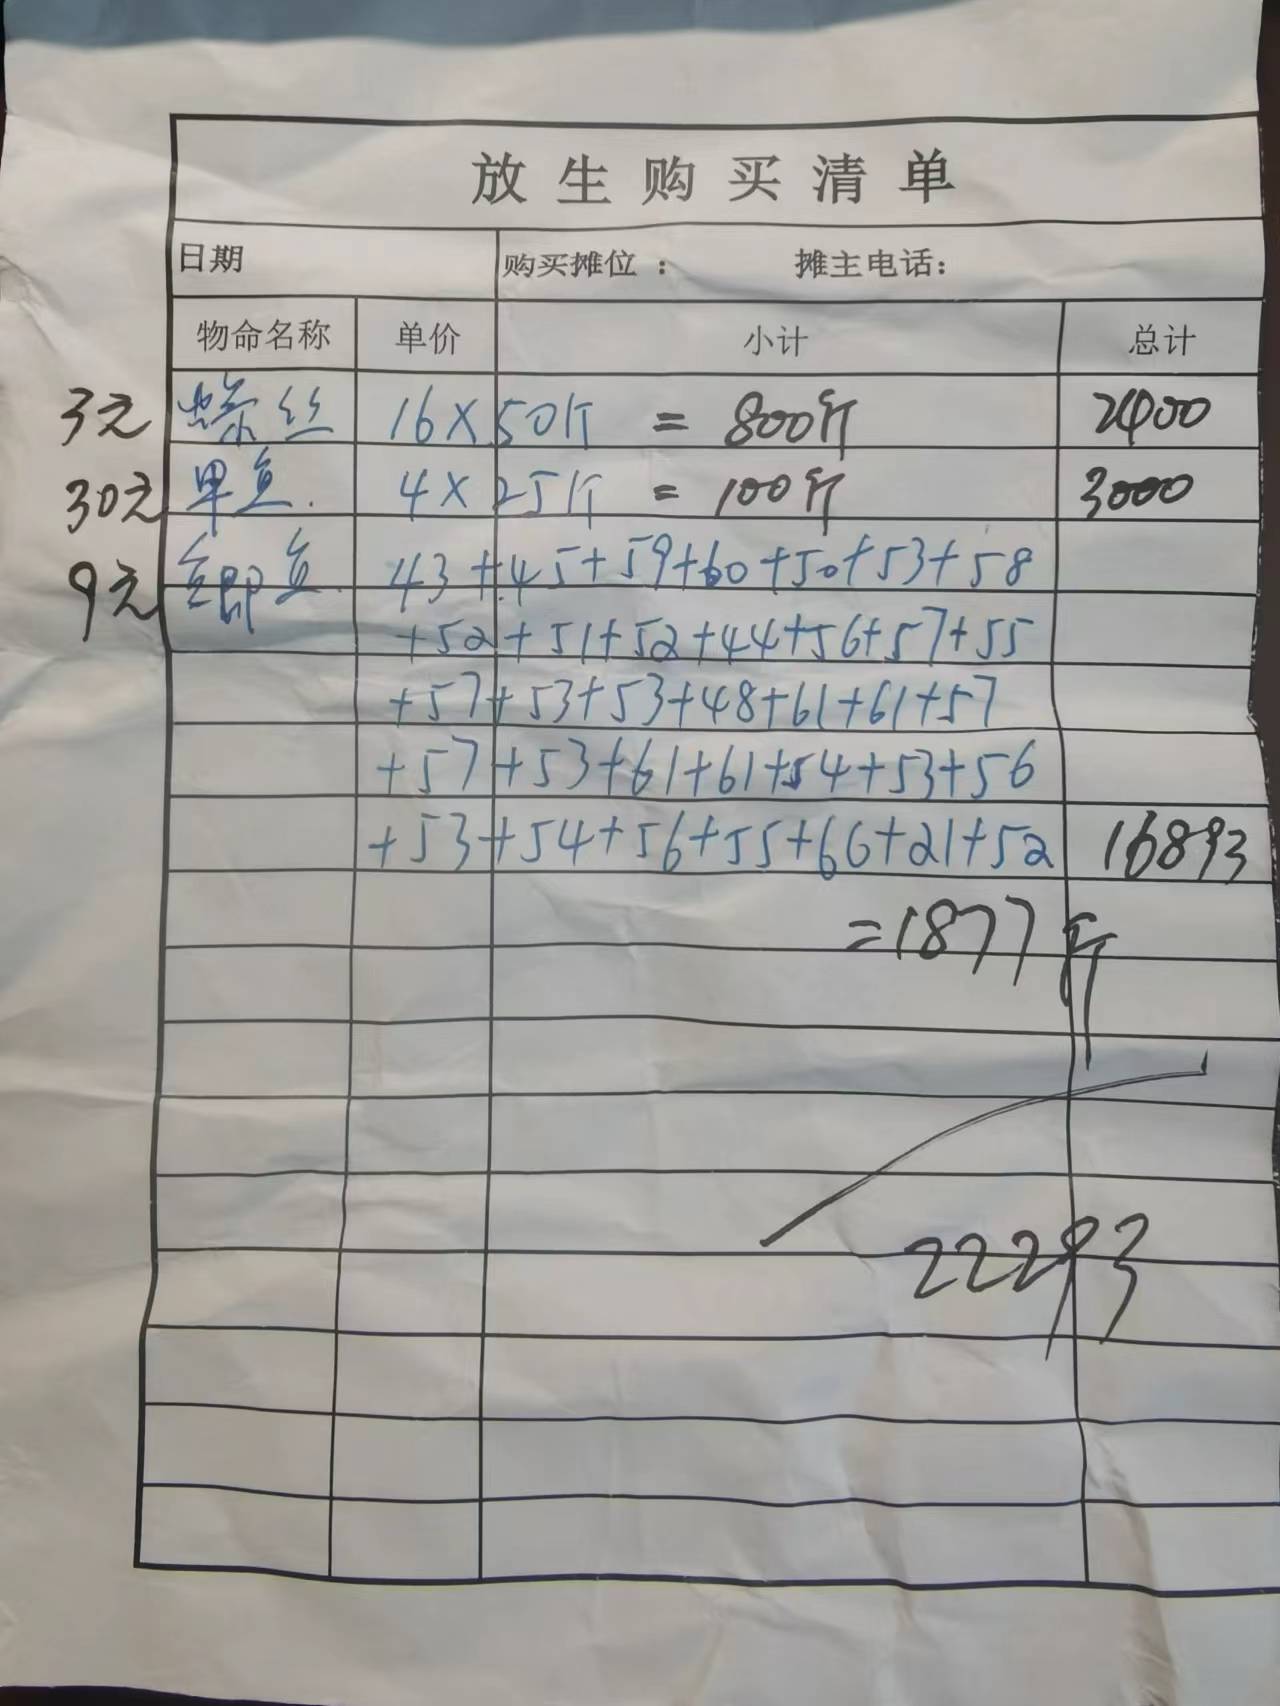 放生购买清单
日期 购买摊位： 摊主电话：
物命名称 单价 小计 总计
3元 螺丝 16×50斤 = 800斤 2400
30元 甲鱼. 4×25斤 = 100斤 3000
9元 鲫鱼 43+45+59+60+50+53+58
+52+51+52+44+56+57+55
+57+53+53+48+61+61+57
+57+53+61+61+54+53+56
+53+54+56+55+66+21+52 16893
=1877斤
22293